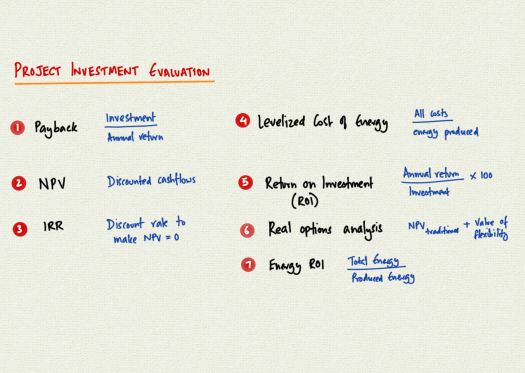 PROJECT INVESTMENT EVALUATION
1 Payback Investment / Annual return
2 NPV Discounted cashflows
3 IRR Discount rate to
make NPV = 0
4 Levelized Cost of Energy All costs / energy produced
5 Return on Investment Annual return / Investment × 100
(ROI)
6 Real options analysis NPV traditional + Value of
flexibility
7 Energy ROI Total Energy / Produced Energy